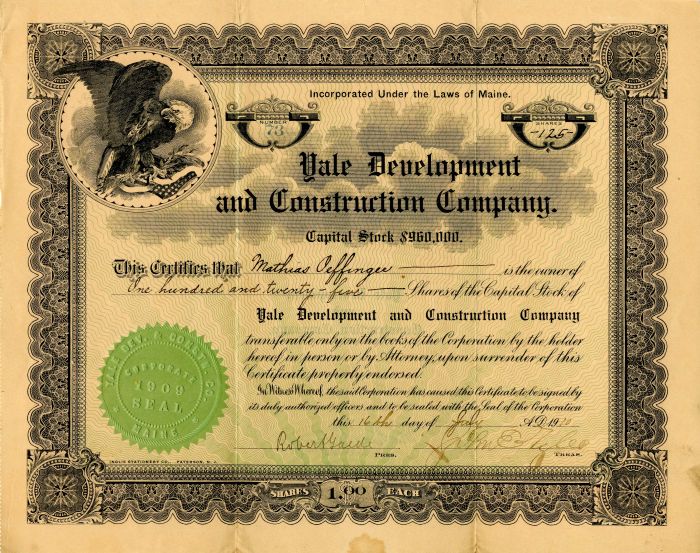 Incorporated Under the Laws of Maine.
NUMBER
73
SHARES
-125-
Yale Development
and Construction Company.
Capital Stock $960,000.
This Certifies that Mathias Peffinger is the owner of
One hundred and twenty-five Shares of the Capital Stock of
Yale Development and Construction Company
transferable only on the books of the Corporation by the holder
hereof in person or by Attorney, upon surrender of this
Certificate properly endorsed.
In Witness Whereof, the said Corporation has caused this Certificate to be signed by
its duly authorized officers and to be sealed with the Seal of the Corporation
this 16th day of July A.D. 1910
YALE DEV. & CONSTN. CO.
CORPORATE
1909
SEAL
MAINE
Robert
PRES.
TREAS.
INGLIS STATIONERY CO., PATERSON, N.J.
SHARES 1.00 EACH